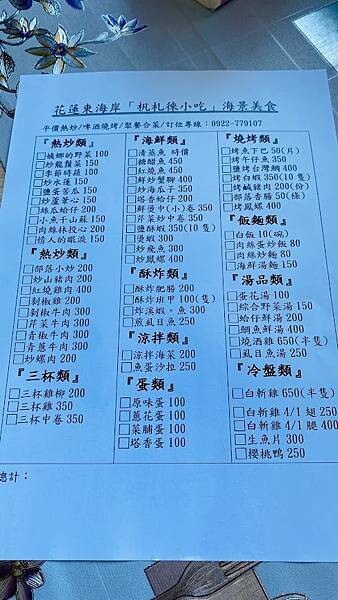 花蓮東海岸「朳札徠小吃」海景美食
平價熱炒/啤酒燒烤/聚餐合菜/訂位專線：0922-779107
『熱炒類』
姨娜的野菜 100
炒龍鬚菜 150
季節時蔬 100
炒水蓮 150
鹽蛋苦瓜 150
炒蘆筍 150
絲瓜蛤仔 200
小魚子山蘇 150
肉絲林投心 200
情人的眼淚 150
『熱炒類』
部落小炒 200
炒山豬肉 200
紅燒雞肉 400
剝椒雞 200
剝椒牛肉 300
芹菜牛肉 300
青椒牛肉 300
青蔥牛肉 300
炒螺肉 200
『三杯類』
三杯雞柳 200
三杯雞 350
三杯中卷 350
『海鮮類』
清蒸魚 時價
糖醋魚 450
紅燒魚 450
鮮炒蟹腳 400
炒海瓜子 350
塔香蛤仔 200
鮮燙中(小)卷 350
芹菜炒中卷 350
鹽酥蝦 350(10 隻)
燙蝦 300
炒飛魚 300
炒鳳螺 400
『酥炸類』
酥炸肥腸 200
酥炸斑甲 100(隻)
炸溪蝦、魚 300
煎虱目魚 250
『涼拌類』
涼拌海菜 200
魚蛋沙拉 250
『蛋類』
原味蛋 100
蔥花蛋 100
菜脯蛋 100
塔香蛋 100
『燒烤類』
烤魚下巴 50(片)
烤午仔魚 350
鹽烤台灣鯛 400
烤白蝦 350(10 隻)
烤鹹豬肉 200(份)
部落香腸 50(條)
烤鳳螺 400
『飯麵類』
白飯 10(碗)
肉絲蛋炒飯 80
肉絲炒麵 80
海鮮湯麵 150
『湯品類』
蛋花湯 100
綜合野菜湯 150
蛤仔鮮湯 200
鯛魚鮮湯 400
燒酒雞 650(半隻)
虱目魚湯 250
『冷盤類』
白斬雞 650(半隻)
白斬雞 4/1 翅 250
白斬雞 4/1 腿 400
生魚片 300
櫻桃鴨 250
總計：